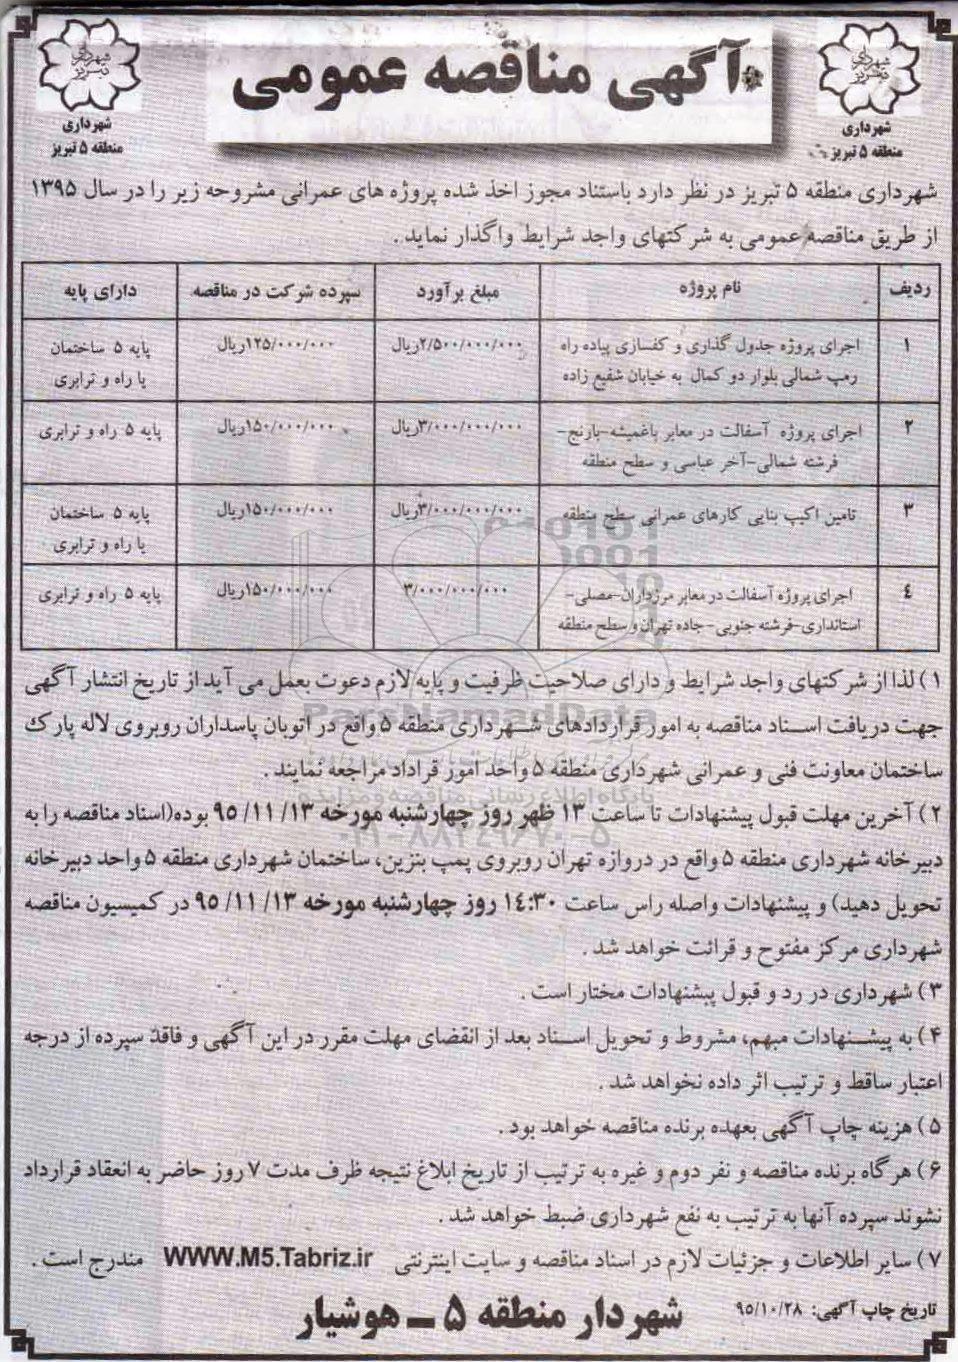 آگهی مناقصه عمومی
شهرداری تبریز
شهرداری
منطقه ۵ تبریز
شهرداری تبریز
شهرداری
منطقه ۵ تبریز
شهرداری منطقه ۵ تبریز در نظر دارد باستناد مجوز اخذ شده پروژه های عمرانی مشروحه زیر را در سال ۱۳۹۵
از طریق مناقصه عمومی به شرکتهای واجد شرایط واگذار نماید .
ردیف نام پروژه مبلغ برآورد سپرده شرکت در مناقصه دارای پایه
۱ اجرای پروژه جدول گذاری و کفسازی پیاده راه ۲/۵۰۰/۰۰۰/۰۰۰ریال ۱۲۵/۰۰۰/۰۰۰ریال پایه ۵ ساختمان
رمپ شمالی بلوار دو کمال به خیابان شفیع زاده یا راه و ترابری
۲ اجرای پروژه آسفالت در معابر باغمیشه-بارنج- ۳/۰۰۰/۰۰۰/۰۰۰ریال ۱۵۰/۰۰۰/۰۰۰ریال پایه ۵ راه و ترابری
فرشته شمالی-آخر عباسی و سطح منطقه
۳ تامین اکیپ بنایی کارهای عمرانی سطح منطقه ۳/۰۰۰/۰۰۰/۰۰۰ریال ۱۵۰/۰۰۰/۰۰۰ریال پایه ۵ ساختمان
یا راه و ترابری
٤ اجرای پروژه آسفالت در معابر مرزداران-مصلی- ۳/۰۰۰/۰۰۰/۰۰۰ ۱۵۰/۰۰۰/۰۰۰ریال پایه ۵ راه و ترابری
استانداری-فرشته جنوبی-جاده تهران و سطح منطقه
۱) لذا از شرکتهای واجد شرایط و دارای صلاحیت ظرفیت و پایه لازم دعوت بعمل می آید از تاریخ انتشار آگهی
جهت دریافت اسناد مناقصه به امور قراردادهای شهرداری منطقه ۵ واقع در اتوبان پاسداران روبروی لاله پارک
ساختمان معاونت فنی و عمرانی شهرداری منطقه ۵ واحد امور قراداد مراجعه نمایند .
۲) آخرین مهلت قبول پیشنهادات تا ساعت ۱۳ ظهر روز چهارشنبه مورخه ۹۵/۱۱/۱۳ بوده(اسناد مناقصه را به
دبیرخانه شهرداری منطقه ۵ واقع در دروازه تهران روبروی پمپ بنزین، ساختمان شهرداری منطقه ۵ واحد دبیرخانه
تحویل دهید) و پیشنهادات واصله راس ساعت ۱٤:۳۰ روز چهارشنبه مورخه ۹۵/۱۱/۱۳ در کمیسیون مناقصه
شهرداری مرکز مفتوح و قرائت خواهد شد .
۳) شهرداری در رد و قبول پیشنهادات مختار است .
۴) به پیشنهادات مبهم، مشروط و تحویل اسناد بعد از انقضای مهلت مقرر در این آگهی و فاقد سپرده از درجه
اعتبار ساقط و ترتیب اثر داده نخواهد شد .
۵) هزینه چاپ آگهی بعهده برنده مناقصه خواهد بود .
۶) هرگاه برنده مناقصه و نفر دوم و غیره به ترتیب از تاریخ ابلاغ نتیجه ظرف مدت ۷ روز حاضر به انعقاد قرارداد
نشوند سپرده آنها به ترتیب به نفع شهرداری ضبط خواهد شد .
۷) سایر اطلاعات و جزئیات لازم در اسناد مناقصه و سایت اینترنتی WWW.M5.Tabriz.ir مندرج است .
تاریخ چاپ آگهی: ۹۵/۱۰/۲۸
شهردار منطقه ۵ ــ هوشیار
ParsNamadData
پایگاه اطلاع رسانی مناقصه و مزایده
۰۲۱-۸۸۳۴۹۶۷۰-۵